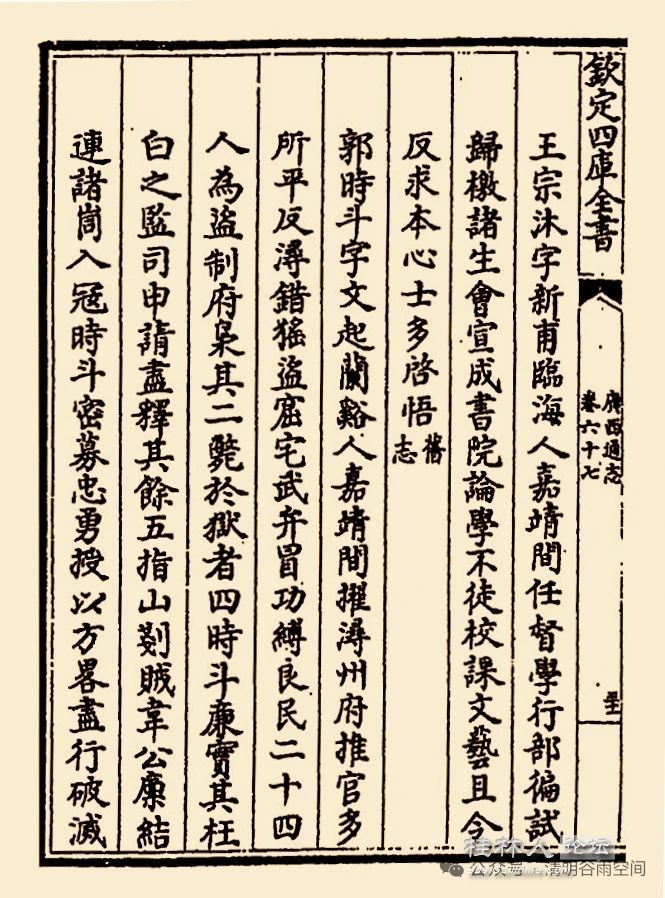 欽定四庫全書
廣西通志
卷六十七
王宗沐字新甫臨海人嘉靖間任督學行部徧試
歸檄諸生會宣成書院論學不徒校課文藝且令
反求本心士多啓悟舊志
郭時斗字文起蘭谿人嘉靖間擢潯州府推官多
所平反潯錯猺盜窟宅武弁冒功縛良民二十四
人為盜制府梟其二斃於獄者四時斗亷實其枉
白之監司申請盡釋其餘五指山剗賊韋公廪結
連諸峝入寇時斗密募忠勇授以方畧盡行破滅
桂林人论坛
公众号·清明谷雨空间